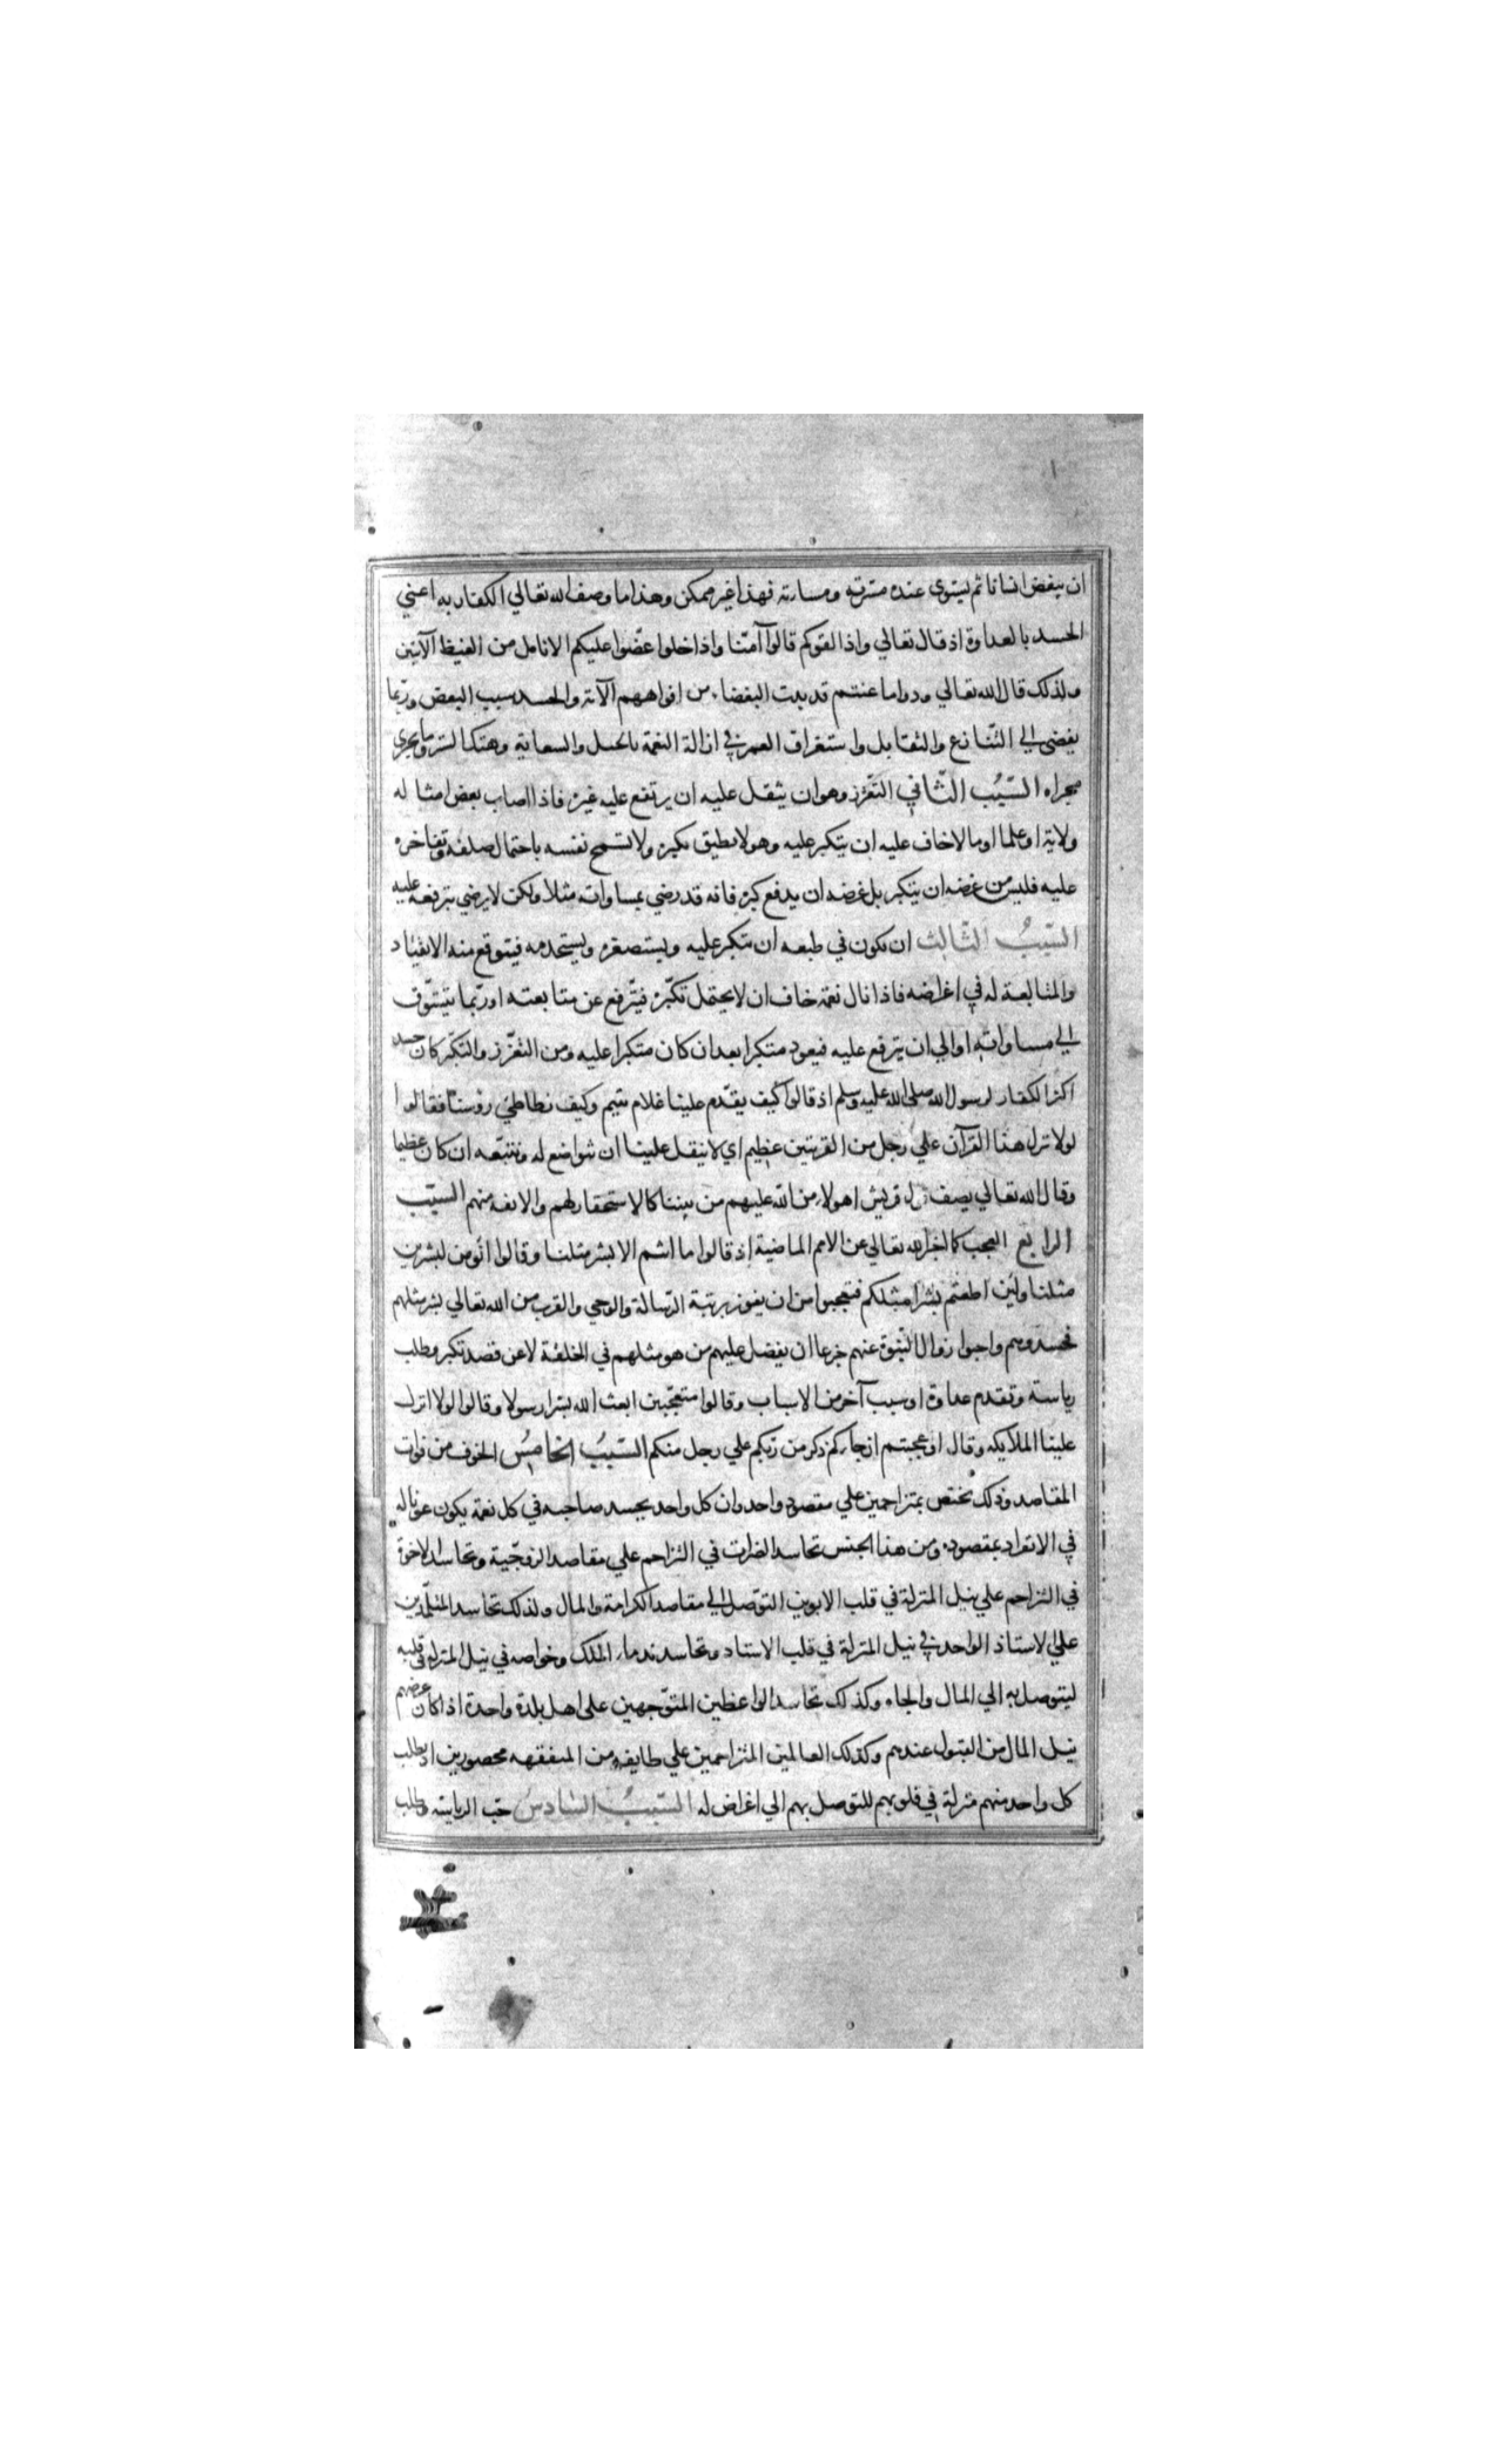 ان يبغض انسانا ثم يستوى عنده مسرته ومساءته فهذا غير ممكن وهذا ما وصف الله تعالي الكفار به اعني
الحسد بالعداوة اذ قال تعالي واذا لقوكم قالوا آمنّا واذا خلوا عضّوا عليكم الانامل من الغيظ الآيتين
وكذلك قال الله تعالي ودوا ما عنتم قد بدت البغضاء من افواههم الآية والحسد بسبب البغض وربّما
يفضي الي التّنازع والتقابل واستغراق العمر في ازالة النعمة بالحيل والسعاية وهتك الستر وما يجرى
مجراه السّبب الثّاني التعزّز وهو ان يثقل عليه ان يرتفع عليه غيره فاذا اصاب بعض امثاله
ولاية او علما او مالا خاف عليه ان يتكبر عليه وهو لا يطيق تكبره ولا تسمح نفسه باحتمال صلفه وتفاخره
عليه فليس من غرضه ان يتكبر بل غرضه ان يدفع كبره فانه قد رضي بمساواته مثلا ولكن لا يرضي بترفعه عليه
السّببُ الثّالث ان يكون في طبعه ان يتكبر عليه ويستصغره ويستخدمه فيتوقع منه الانقياد
والمتابعة له في اغراضه فاذا نال نعمة خاف ان لا يحتمل تكبّره فيترفع عن متابعته او ربّما يتشوّف
الي مساواته او الي ان يترفع عليه فيعود متكبرا بعد ان كان متكبرا عليه ومن التعزّز والتكبّر كان حسد
اكثر الكفار لرسول الله صلى الله عليه وسلم اذ قالوا كيف يتقدم علينا غلام يتيم وكيف نطاطئ رؤسنا فقالوا
لولا نزل هذا القرآن علي رجل من القريتين عظيم اي لا يثقل علينا ان نتواضع له ونتبعه ان كان عظيما
وقال الله تعالي يصف قريش اهولاء من الله عليهم من بيننا كالاستحقار لهم والانفة منهم السبّب
الرابع العجب كما اخبر الله تعالي عن الامم الماضية اذ قالوا ما انتم الا بشر مثلنا وقالوا انؤمن لبشرين
مثلنا ولئن اطعتم بشرا مثلكم فتعجبوا من ان يفوز برتبة الرّسالة والوحي والقرب من الله تعالي بشر مثلهم
فحسدوهم واحبوا زوال النّبوة عنهم جزعا ان يفضل عليهم من هو مثلهم في الخلقة لا عن قصد تكبر وطلب
رياسة وتقدم عداوة او سبب آخر من الاسباب وقالوا متعجّبين ابعث الله بشرا رسولا وقالوا لولا انزل
علينا الملايكه وقال او عجبتم ان جاءكم ذكر من ربّكم علي رجل منكم السّببُ الخامسُ الخوف من فوات
المقاصد وذلك يختص بمتزاحمين علي مقصود واحد وان كل واحد يحسد صاحبه في كل نعمة يكون عونا له
في الانفراد بمقصوده ومن هذا الجنس تحاسد الضرات في التزاحم علي مقاصد الزوجّية وتحاسد الاخوة
في التزاحم علي نيل المنزلة في قلب الابوين التوصّل الي مقاصد الكرامة والمال وكذلك تحاسد المتلمّذين
علي الاستاذ الواحد في نيل المنزلة في قلب الاستاد وتحاسد ندماء الملك وخواصه في نيل المنزلة في قلبه
ليتوصل به الي المال والجاه وكذلك تحاسد الواعظين المتوّجهين على اهل بلدة واحدة اذا كان غرضهم
نيل المال من القبول عندهم وكذلك العالمين المتزاحمين علي طايفة من المتفقهه محصورين اذ يطلب
كل واحد منهم منزلة في قلوبهم للتوصل بهم الي اغراض له السّببُ السّادسُ حبّ الرياسة وطلب